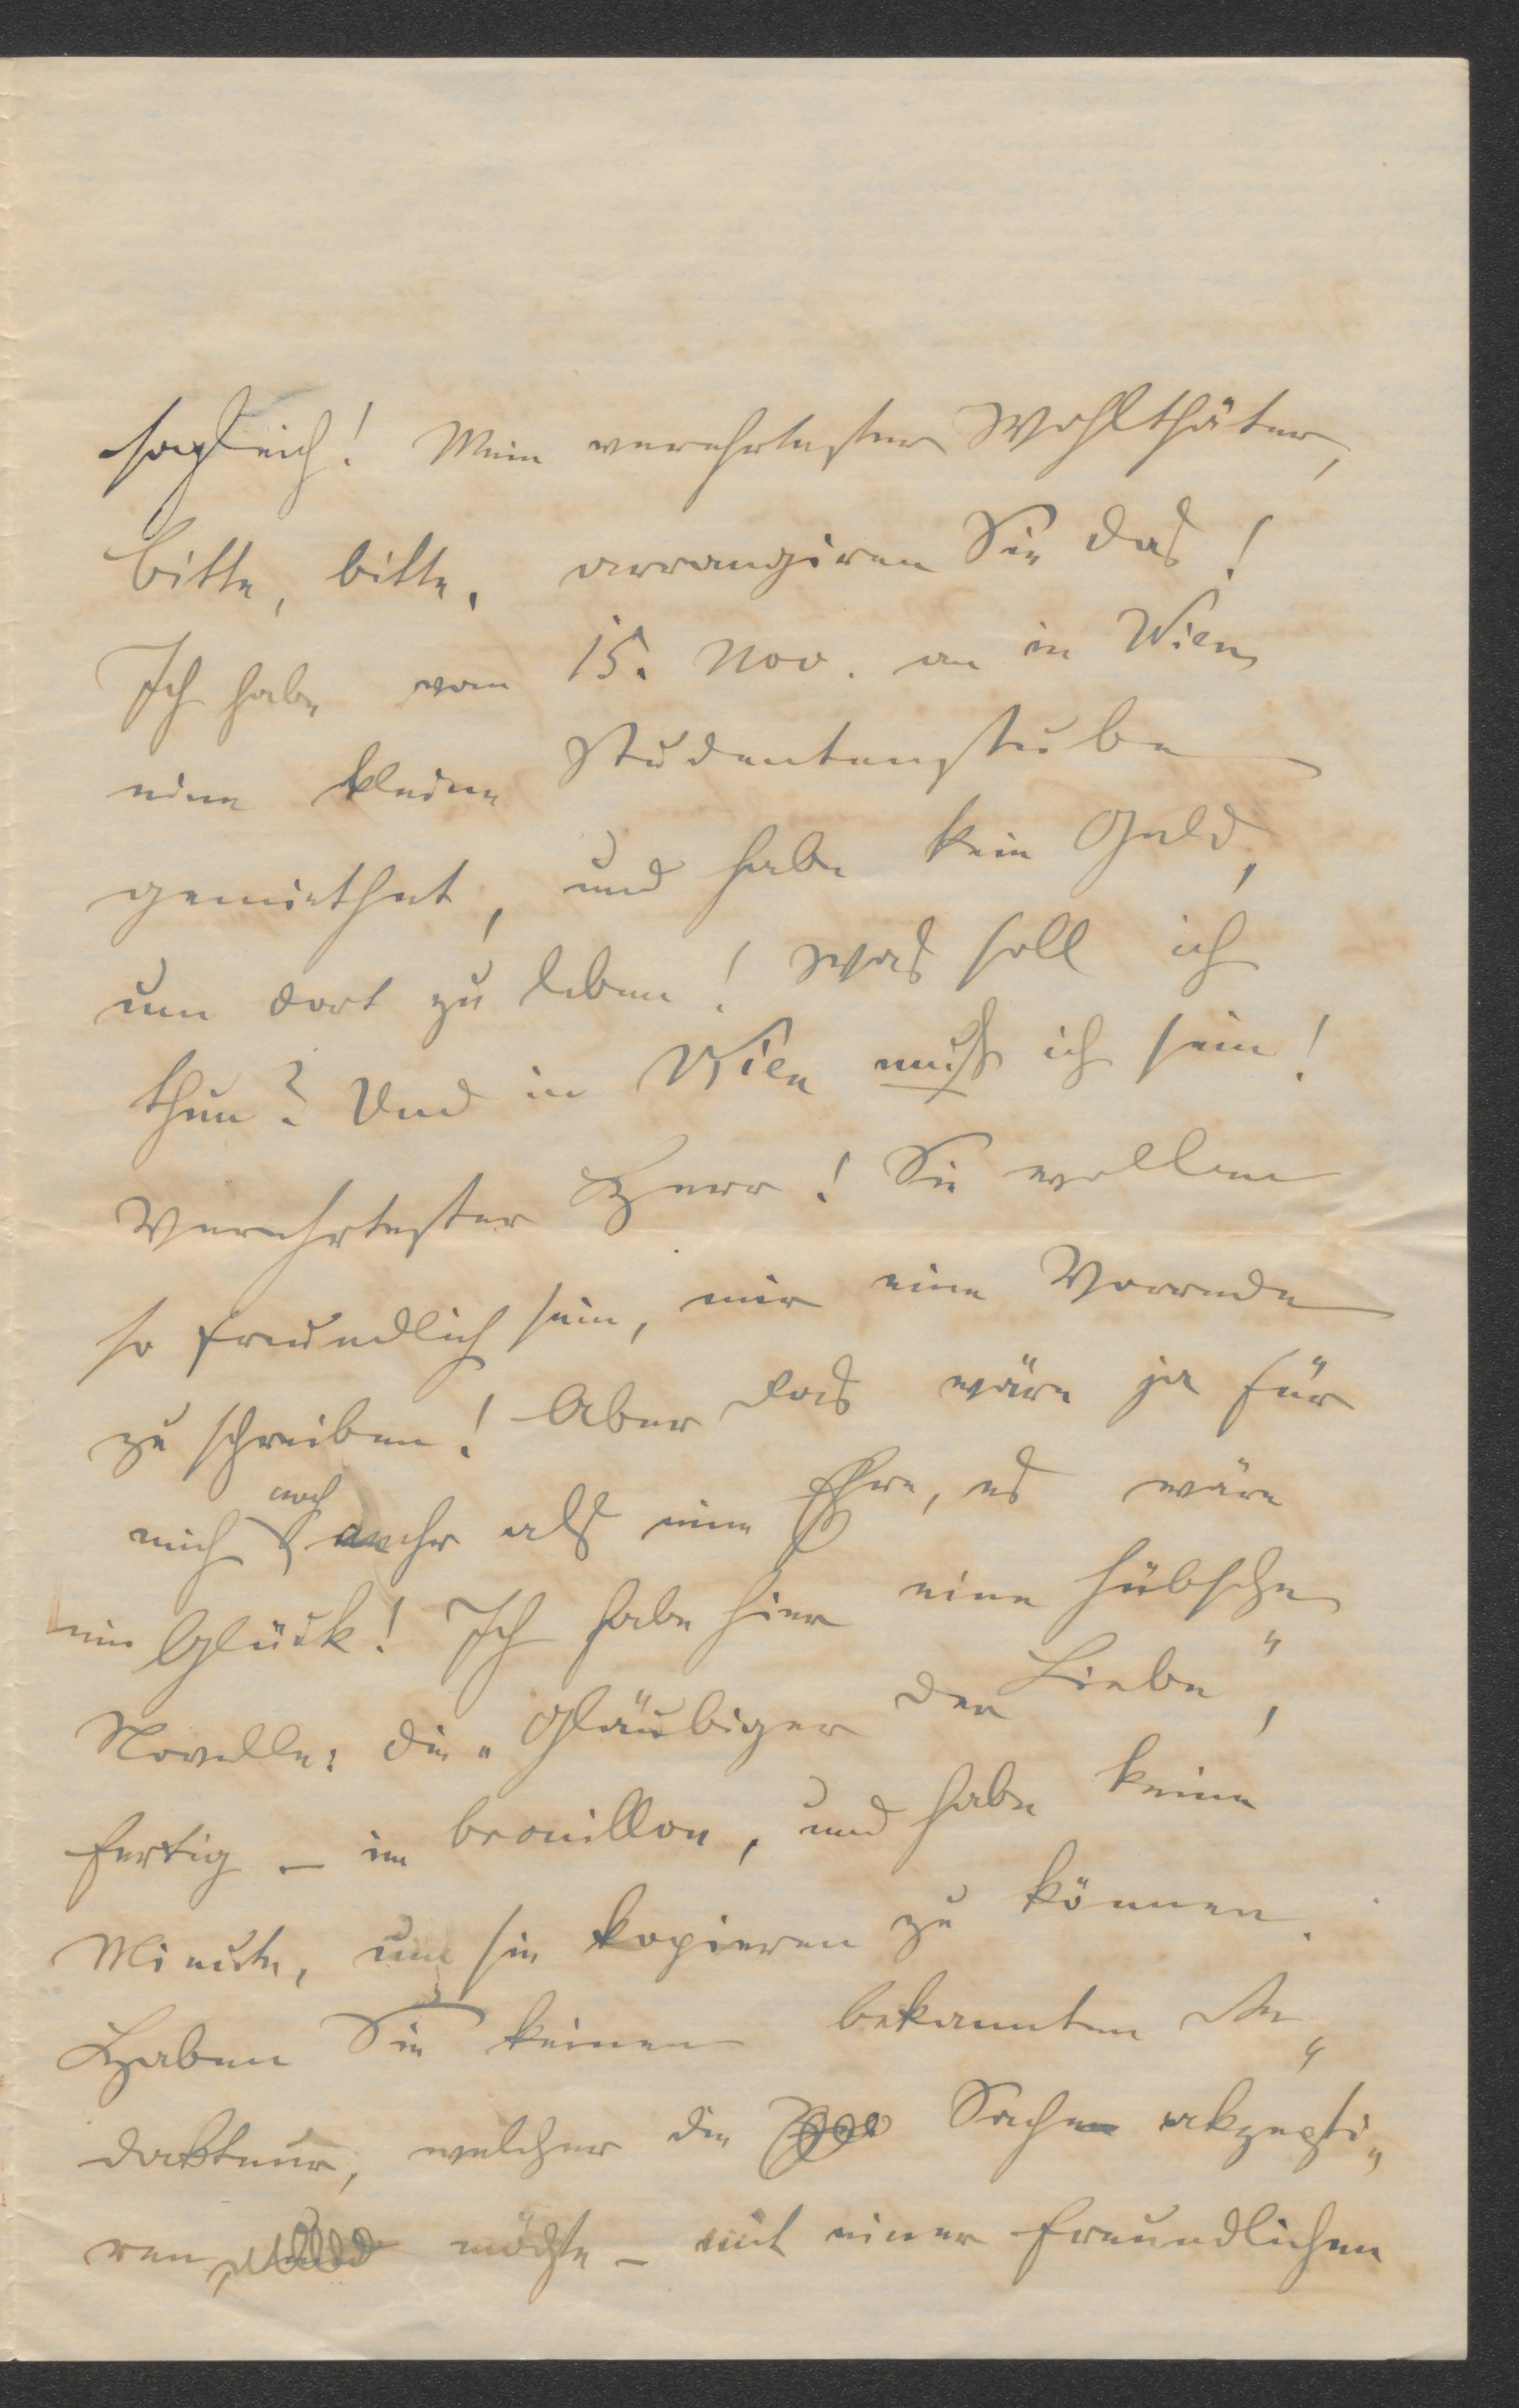 sogleich! Mein verehrtester Wohlthäter,
bitte, bitte, arrangiren Sie das!
Ich habe vom 15. Nov. an in Wien
eine kleine Studentenstube
gemiethet, und habe kein Geld,
um dort zu leben! Was soll ich
thun? Und in Wien muß ich sein!
Verehrtester Herr! Sie wollen
so freundlich sein, mir eine Vorrede
zu schreiben! Aber das wäre ja für
mich noch mehr als eine Ehre, es wäre
ein Glück! Ich habe hier eine hübsche
Novelle: die „Gläubiger der Liebe“,
fertig – im brouillon, und habe keine
Minute, um sie kopieren zu können.
Haben Sie keinen bekannten Re„
dakteur, welcher die Sache akzepti„
ren möchte – mit einer freundlichen